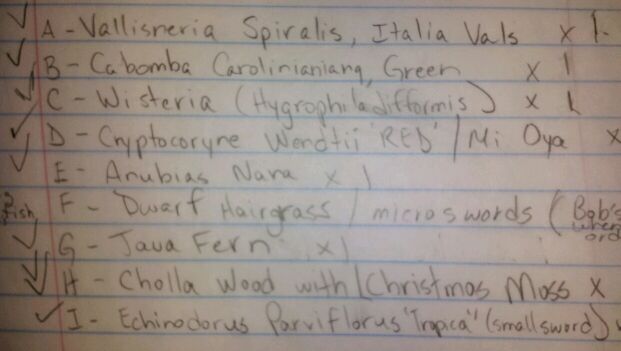 A - Vallisneria Spiralis, Italia Vals x 1
B - Cabomba Carolinianiana, Green x 1
C - Wisteria (Hygrophila difformis) x 1
D - Cryptocoryne Wendtii 'RED' / Mi Oya x
E - Anubias Nana x 1
F - Dwarf Hairgrass / micro swords (Bob's when ord
fish
G - Java Fern x 1
H - Cholla Wood with Christmas Moss x
I - Echinodorus Parviflorus 'Tropica' (small sword)